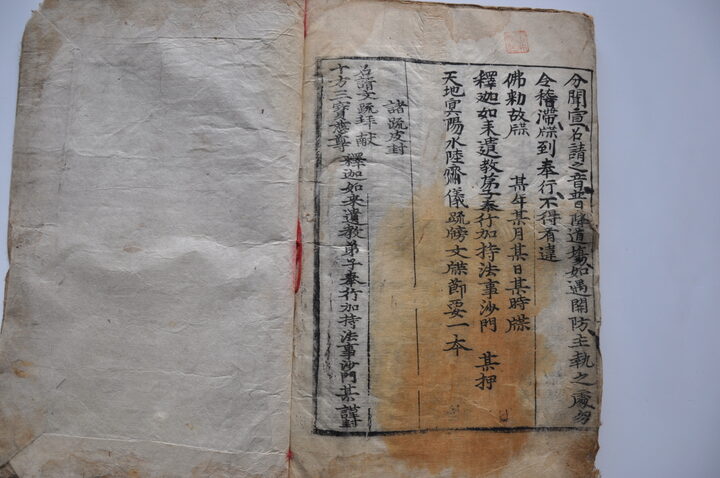 分聞宣召請之音昔日降道場如遇關防主執之處勿
令稽滯牒到奉行不得有違
佛勑故牒 某年某月某日某時牒
釋迦如来遺教弟子奉行加持法事沙門 某押
天地冥陽水陸齋儀疏牓文牒節要一本
諸疏皮封
召請文疏拜献
十方三寳慈尊 釋迦如来遺教弟子奉行加持法事沙門某謹封